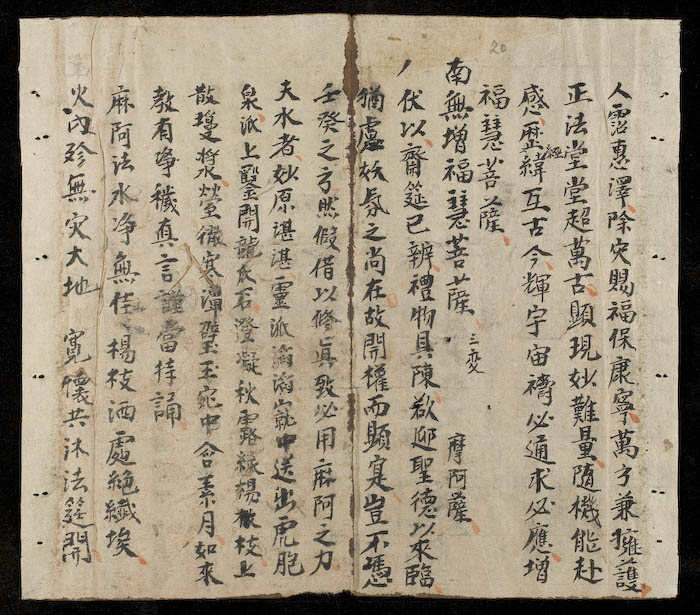 20
人霑惠澤除灾賜福保康寧萬方兼擁護
正法堂堂超萬古顕現妙難量随機能赴
感歴經緯互古今輝宇宙禱必通求必應増
福慧菩薩
南無増福慧菩薩 三变 摩阿薩
伏以齋筵已辨禮物具陳欲迎聖德以來臨
猶慮妖氛之尚在故開權而顕寔豈不憑
壬癸之方然假借以修真致必用麻阿之力
夫水者妙原湛湛靈派滔滔竅中送出虎胞
泉派上鑿開龍氏石澄凝秋露緑楊枝上
散瓊漿瑩徹寒潭碧玉宛中含素月如來
教有净穢真言謹當持誦
麻阿法水净無住楊枝洒處絶纎埃
火内珍無灾大地 寛懐共沐法筵開